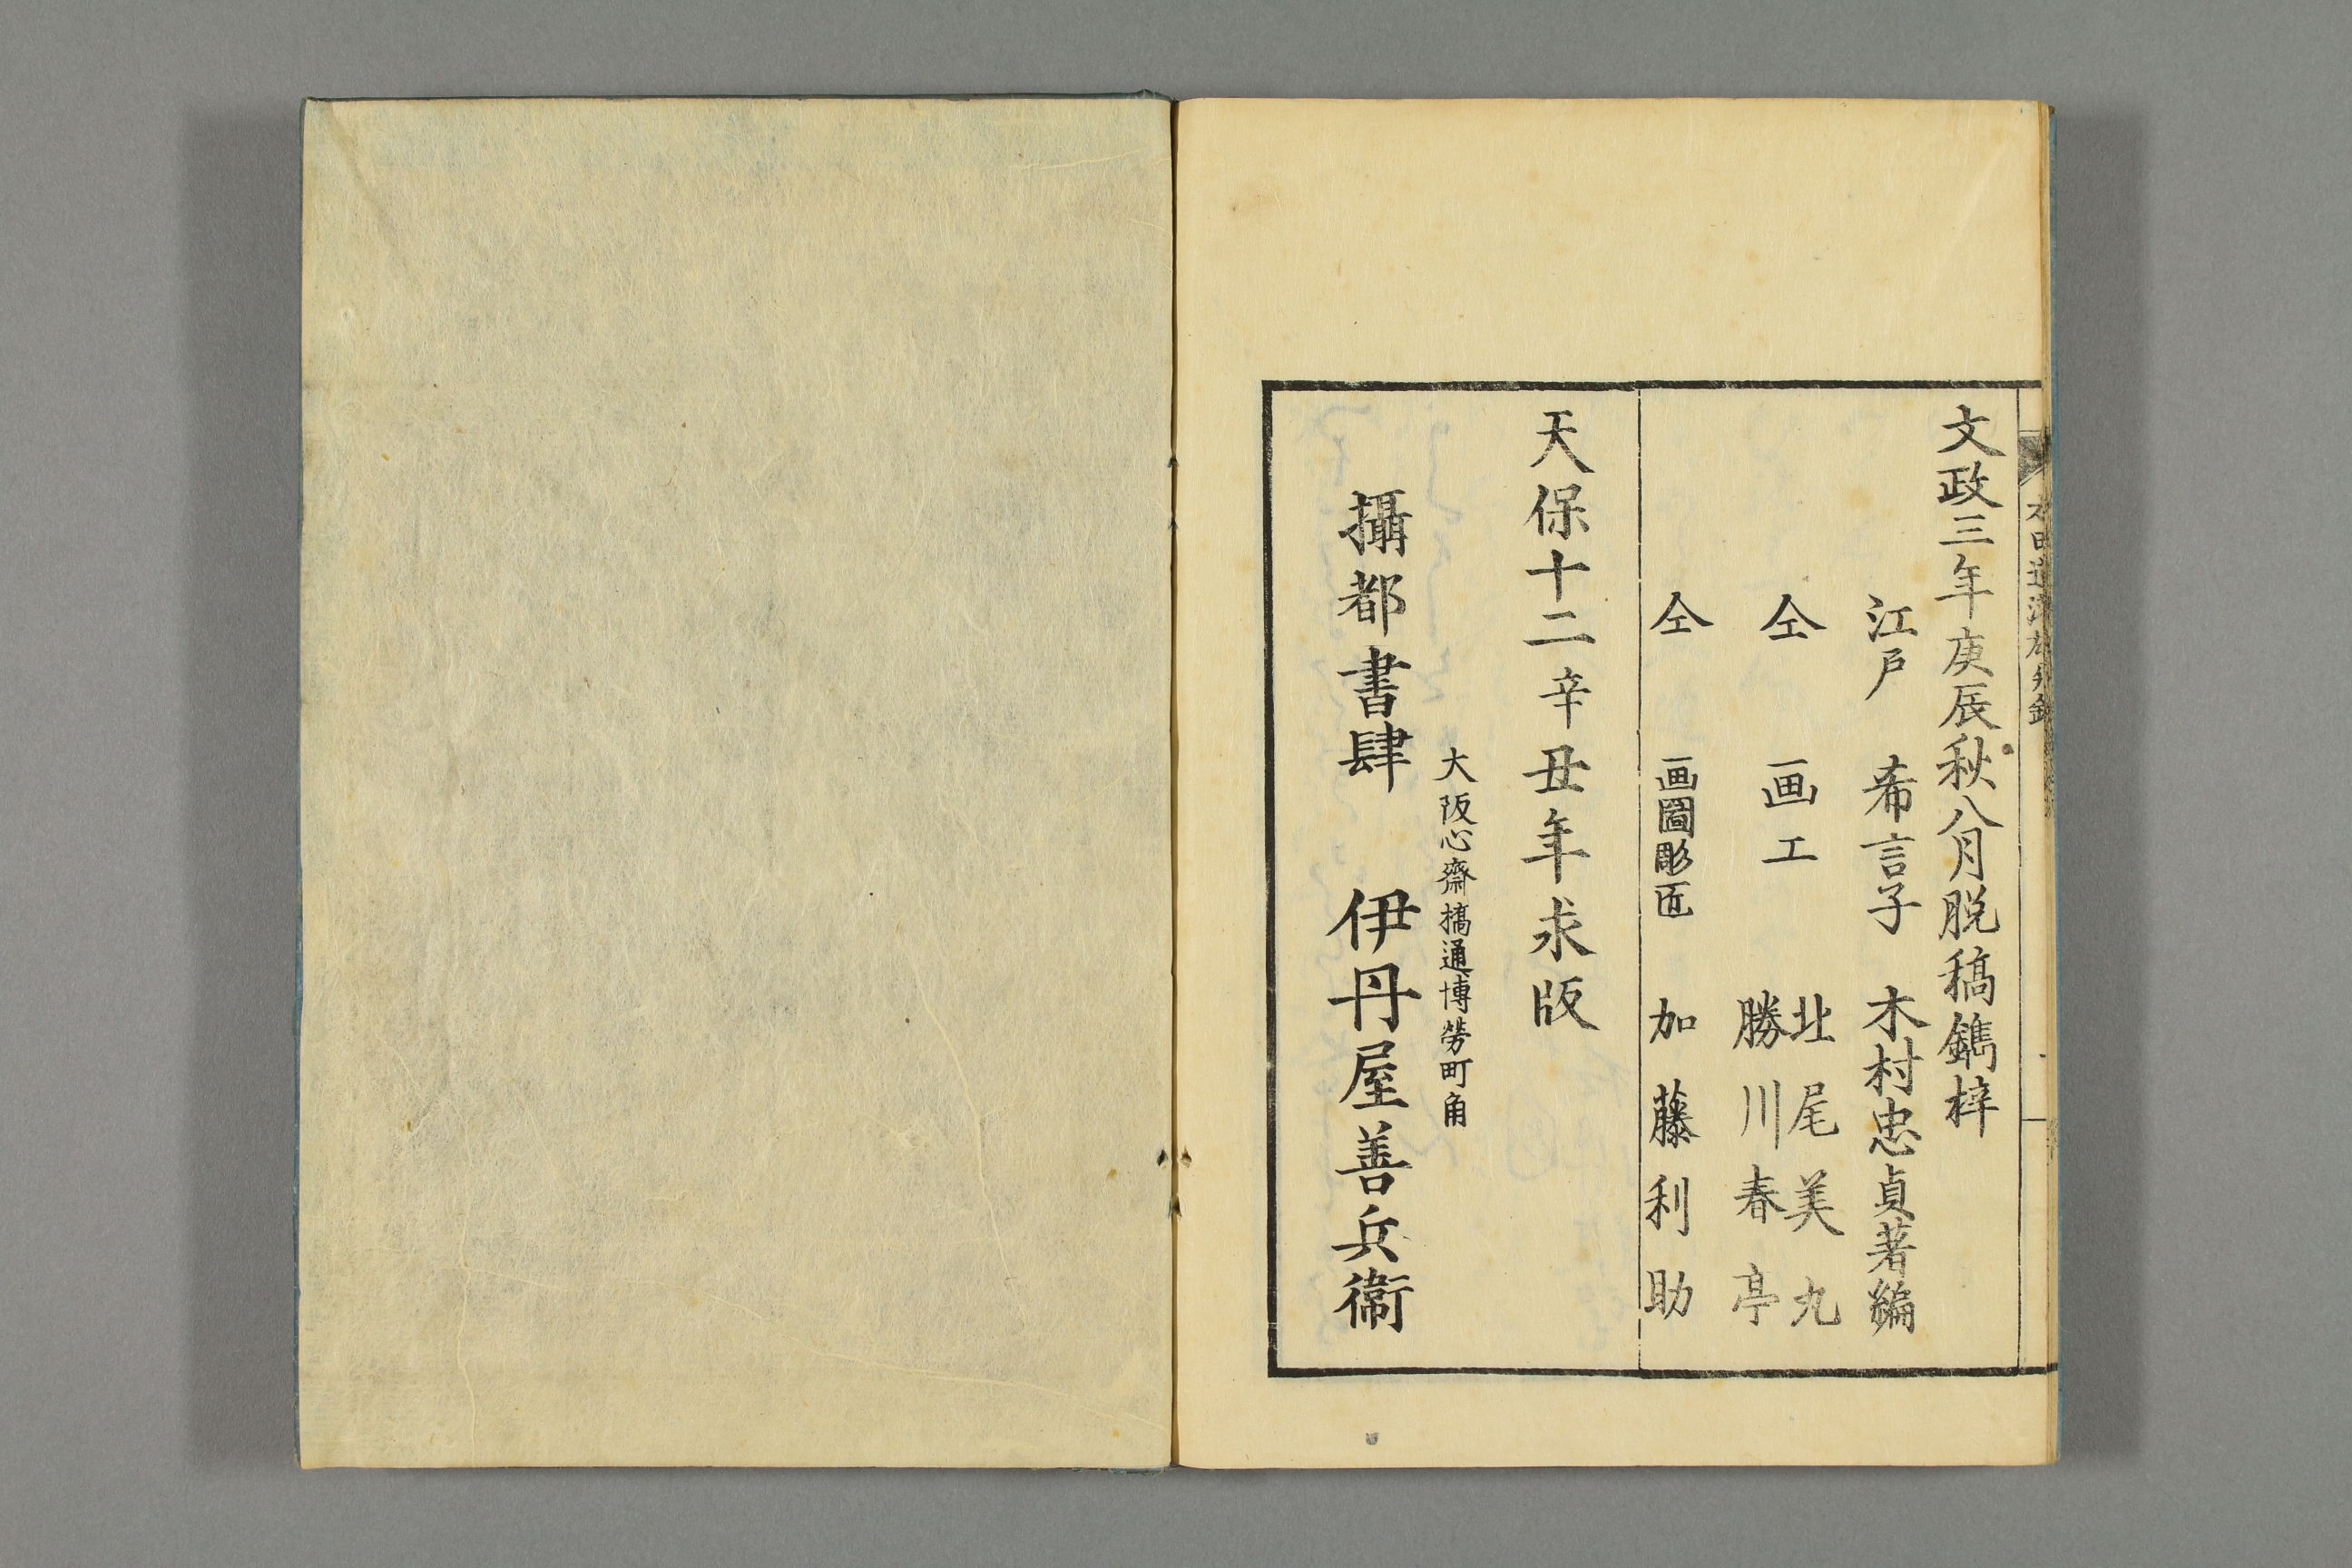 文政三年庚辰秋八月脱稿鐫梓
江戸 希言子 木村忠貞著編
仝 画工 北尾美丸
勝川春亭
仝 画圖彫匠 加藤利助
天保十二辛丑年求版
大阪心齋橋通博労町角
攝都書肆 伊丹屋善兵衞